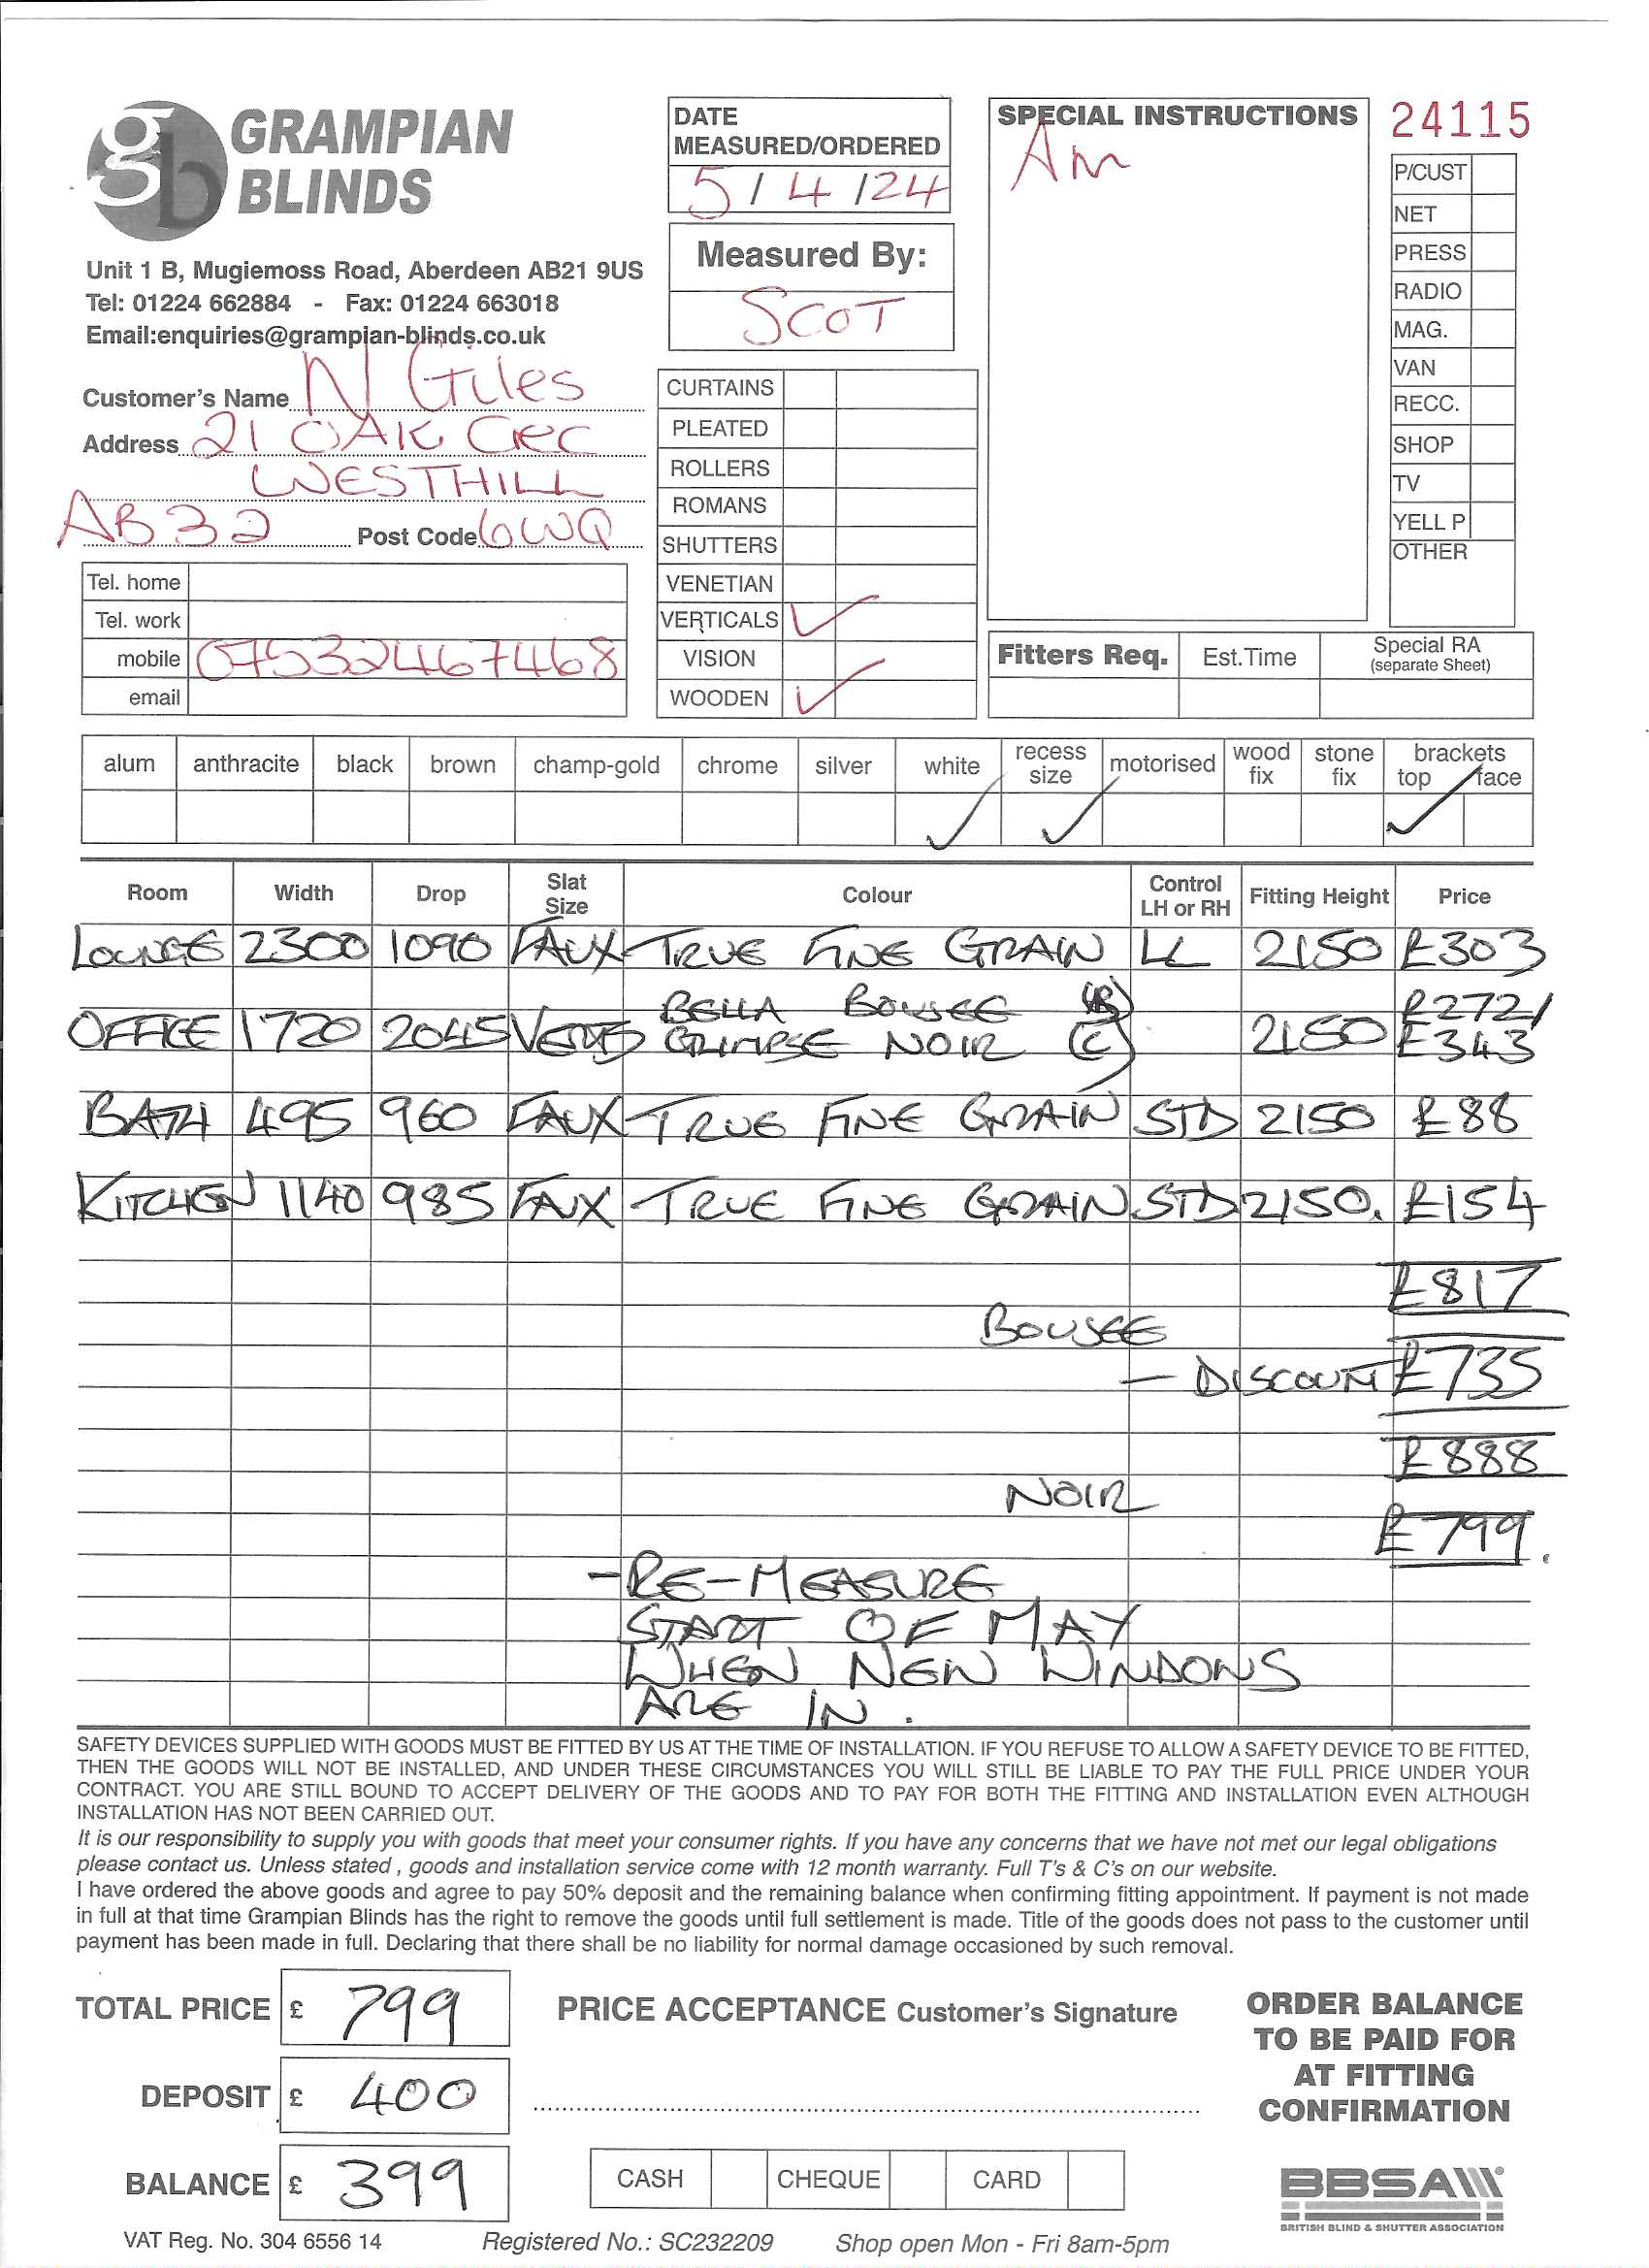 GRAMPIAN
BLINDS
Unit 1 B, Mugiemoss Road, Aberdeen AB21 9US
Tel: 01224 662884 - Fax: 01224 663018
Email:enquiries@grampian-blinds.co.uk
DATE
MEASURED/ORDERED
5/4/24
Measured By:
SCOT
SPECIAL INSTRUCTIONS
Am
24115
P/CUST
NET
PRESS
RADIO
MAG.
VAN
RECC.
SHOP
TV
YELL P
OTHER
Customer's Name N Giles
Address 21 OAK CREC
WESTHILL
AB32 Post Code 6WQ
Tel. home
Tel. work
mobile 07532467468
email
CURTAINS
PLEATED
ROLLERS
ROMANS
SHUTTERS
VENETIAN
VERTICALS ✓
VISION
WOODEN ✓
Fitters Req. Est.Time Special RA
(separate Sheet)
alum anthracite black brown champ-gold chrome silver white recess size motorised wood fix stone fix brackets top face
✓ ✓ ✓
Room Width Drop Slat Size Colour Control LH or RH Fitting Height Price
LOUNGE 2300 1090 FAUX TRUE FINE GRAIN LL 2150 £303
BELLA BOUSEE (B) £272/
OFFICE 1720 2045 VERTS GLIMPSE NOIR (C) 2150 £343
BATH 495 960 FAUX TRUE FINE GRAIN STD 2150 £88
KITCHEN 1140 985 FAUX TRUE FINE GRAIN STD 2150. £154
£817
BOUSEE
- DISCOUNT £735
£888
NOIR
£799.
- RE-MEASURE
START OF MAY
WHEN NEW WINDOWS
ARE IN.
SAFETY DEVICES SUPPLIED WITH GOODS MUST BE FITTED BY US AT THE TIME OF INSTALLATION. IF YOU REFUSE TO ALLOW A SAFETY DEVICE TO BE FITTED,
THEN THE GOODS WILL NOT BE INSTALLED, AND UNDER THESE CIRCUMSTANCES YOU WILL STILL BE LIABLE TO PAY THE FULL PRICE UNDER YOUR
CONTRACT. YOU ARE STILL BOUND TO ACCEPT DELIVERY OF THE GOODS AND TO PAY FOR BOTH THE FITTING AND INSTALLATION EVEN ALTHOUGH
INSTALLATION HAS NOT BEEN CARRIED OUT.
It is our responsibility to supply you with goods that meet your consumer rights. If you have any concerns that we have not met our legal obligations
please contact us. Unless stated , goods and installation service come with 12 month warranty. Full T's & C's on our website.
I have ordered the above goods and agree to pay 50% deposit and the remaining balance when confirming fitting appointment. If payment is not made
in full at that time Grampian Blinds has the right to remove the goods until full settlement is made. Title of the goods does not pass to the customer until
payment has been made in full. Declaring that there shall be no liability for normal damage occasioned by such removal.
TOTAL PRICE £ 799
DEPOSIT £ 400
BALANCE £ 399
PRICE ACCEPTANCE Customer's Signature
CASH CHEQUE CARD
ORDER BALANCE
TO BE PAID FOR
AT FITTING
CONFIRMATION
BBSA
BRITISH BLIND & SHUTTER ASSOCIATION
VAT Reg. No. 304 6556 14 Registered No.: SC232209 Shop open Mon - Fri 8am-5pm